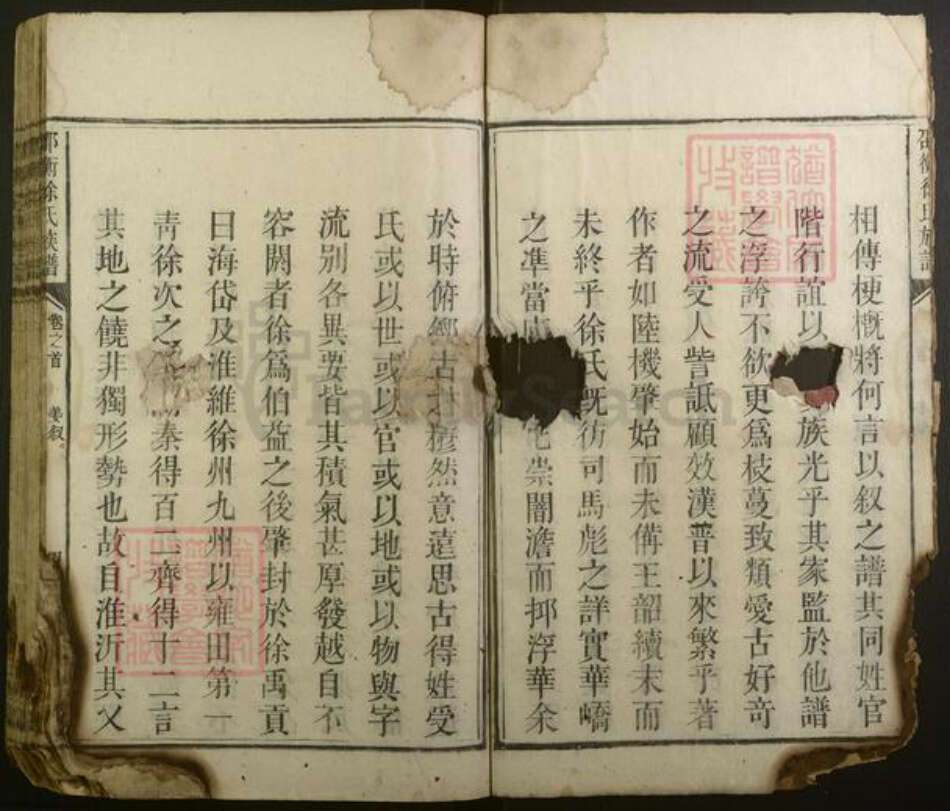 相傳梗槪將何言以叙之譜其同姓官
階行誼以族光乎其家監於他譜
之浮誇不欲更爲枝蔓致類愛古好奇
之流受人訾詆顧效漢晉以來繁乎著
作者如陸機肇始而未備王韶續末而
未終乎徐氏旣彷司馬彪之詳實華嶠
之準當崇闇澹而抑浮華余
於時俯鄉古然意遠思古得姓受
氏或以世或以官或以地或以物與字
流別各異要皆其積氣甚厚發越自不
容閼者徐爲伯益之後肇封於徐禹貢
曰海岱及淮維徐州九州以雍田第一
靑徐次之秦得百二齊得十二言
其地之饒非獨形勢也故自淮沂其乂
邵衡徐氏族譜
卷之首
美叙
邵衡徐氏族譜
FamilySearch